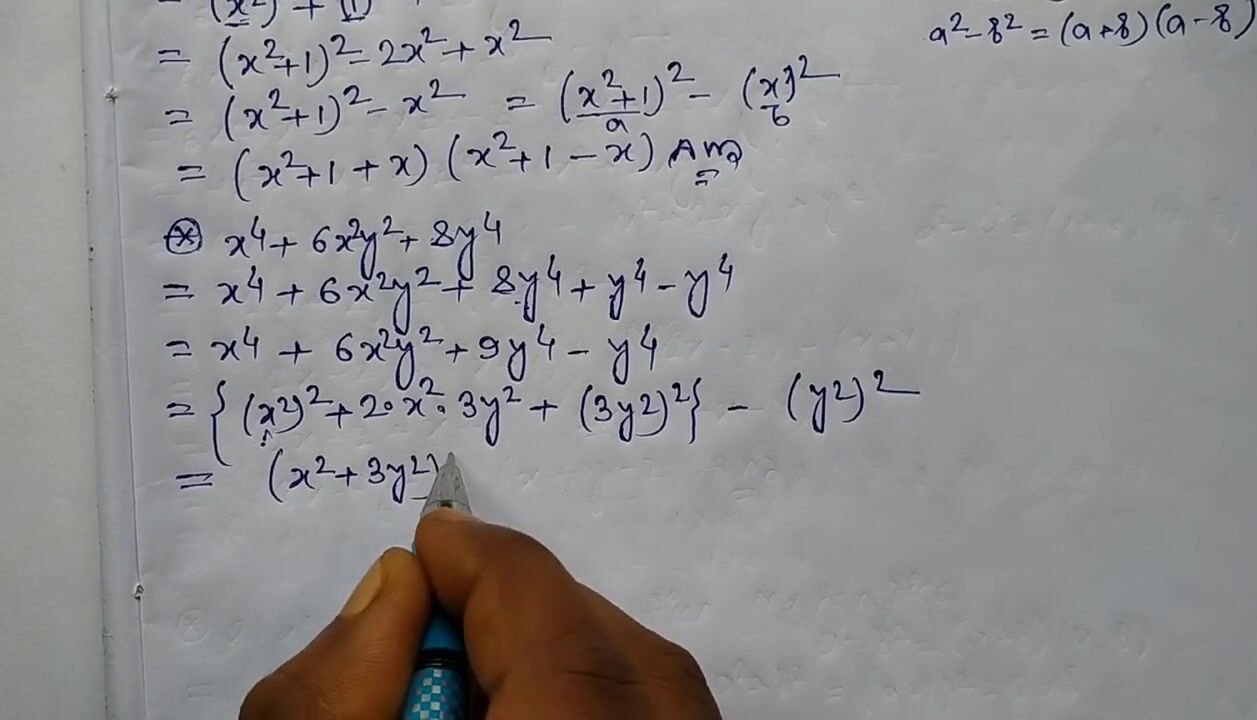 = (x²) + (1)
= (x²+1)² - 2x² + x²
a² - b² = (a+b)(a-b)
= (x²+1)² - x² = (x²+1)² - (x)²
a b
= (x²+1+x) (x²+1-x) Ans
⊛ x⁴ + 6x²y² + 8y⁴
= x⁴ + 6x²y² + 8y⁴ + y⁴ - y⁴
= x⁴ + 6x²y² + 9y⁴ - y⁴
= {(x²)² + 2·x²·3y² + (3y²)²} - (y²)²
= (x² + 3y²)